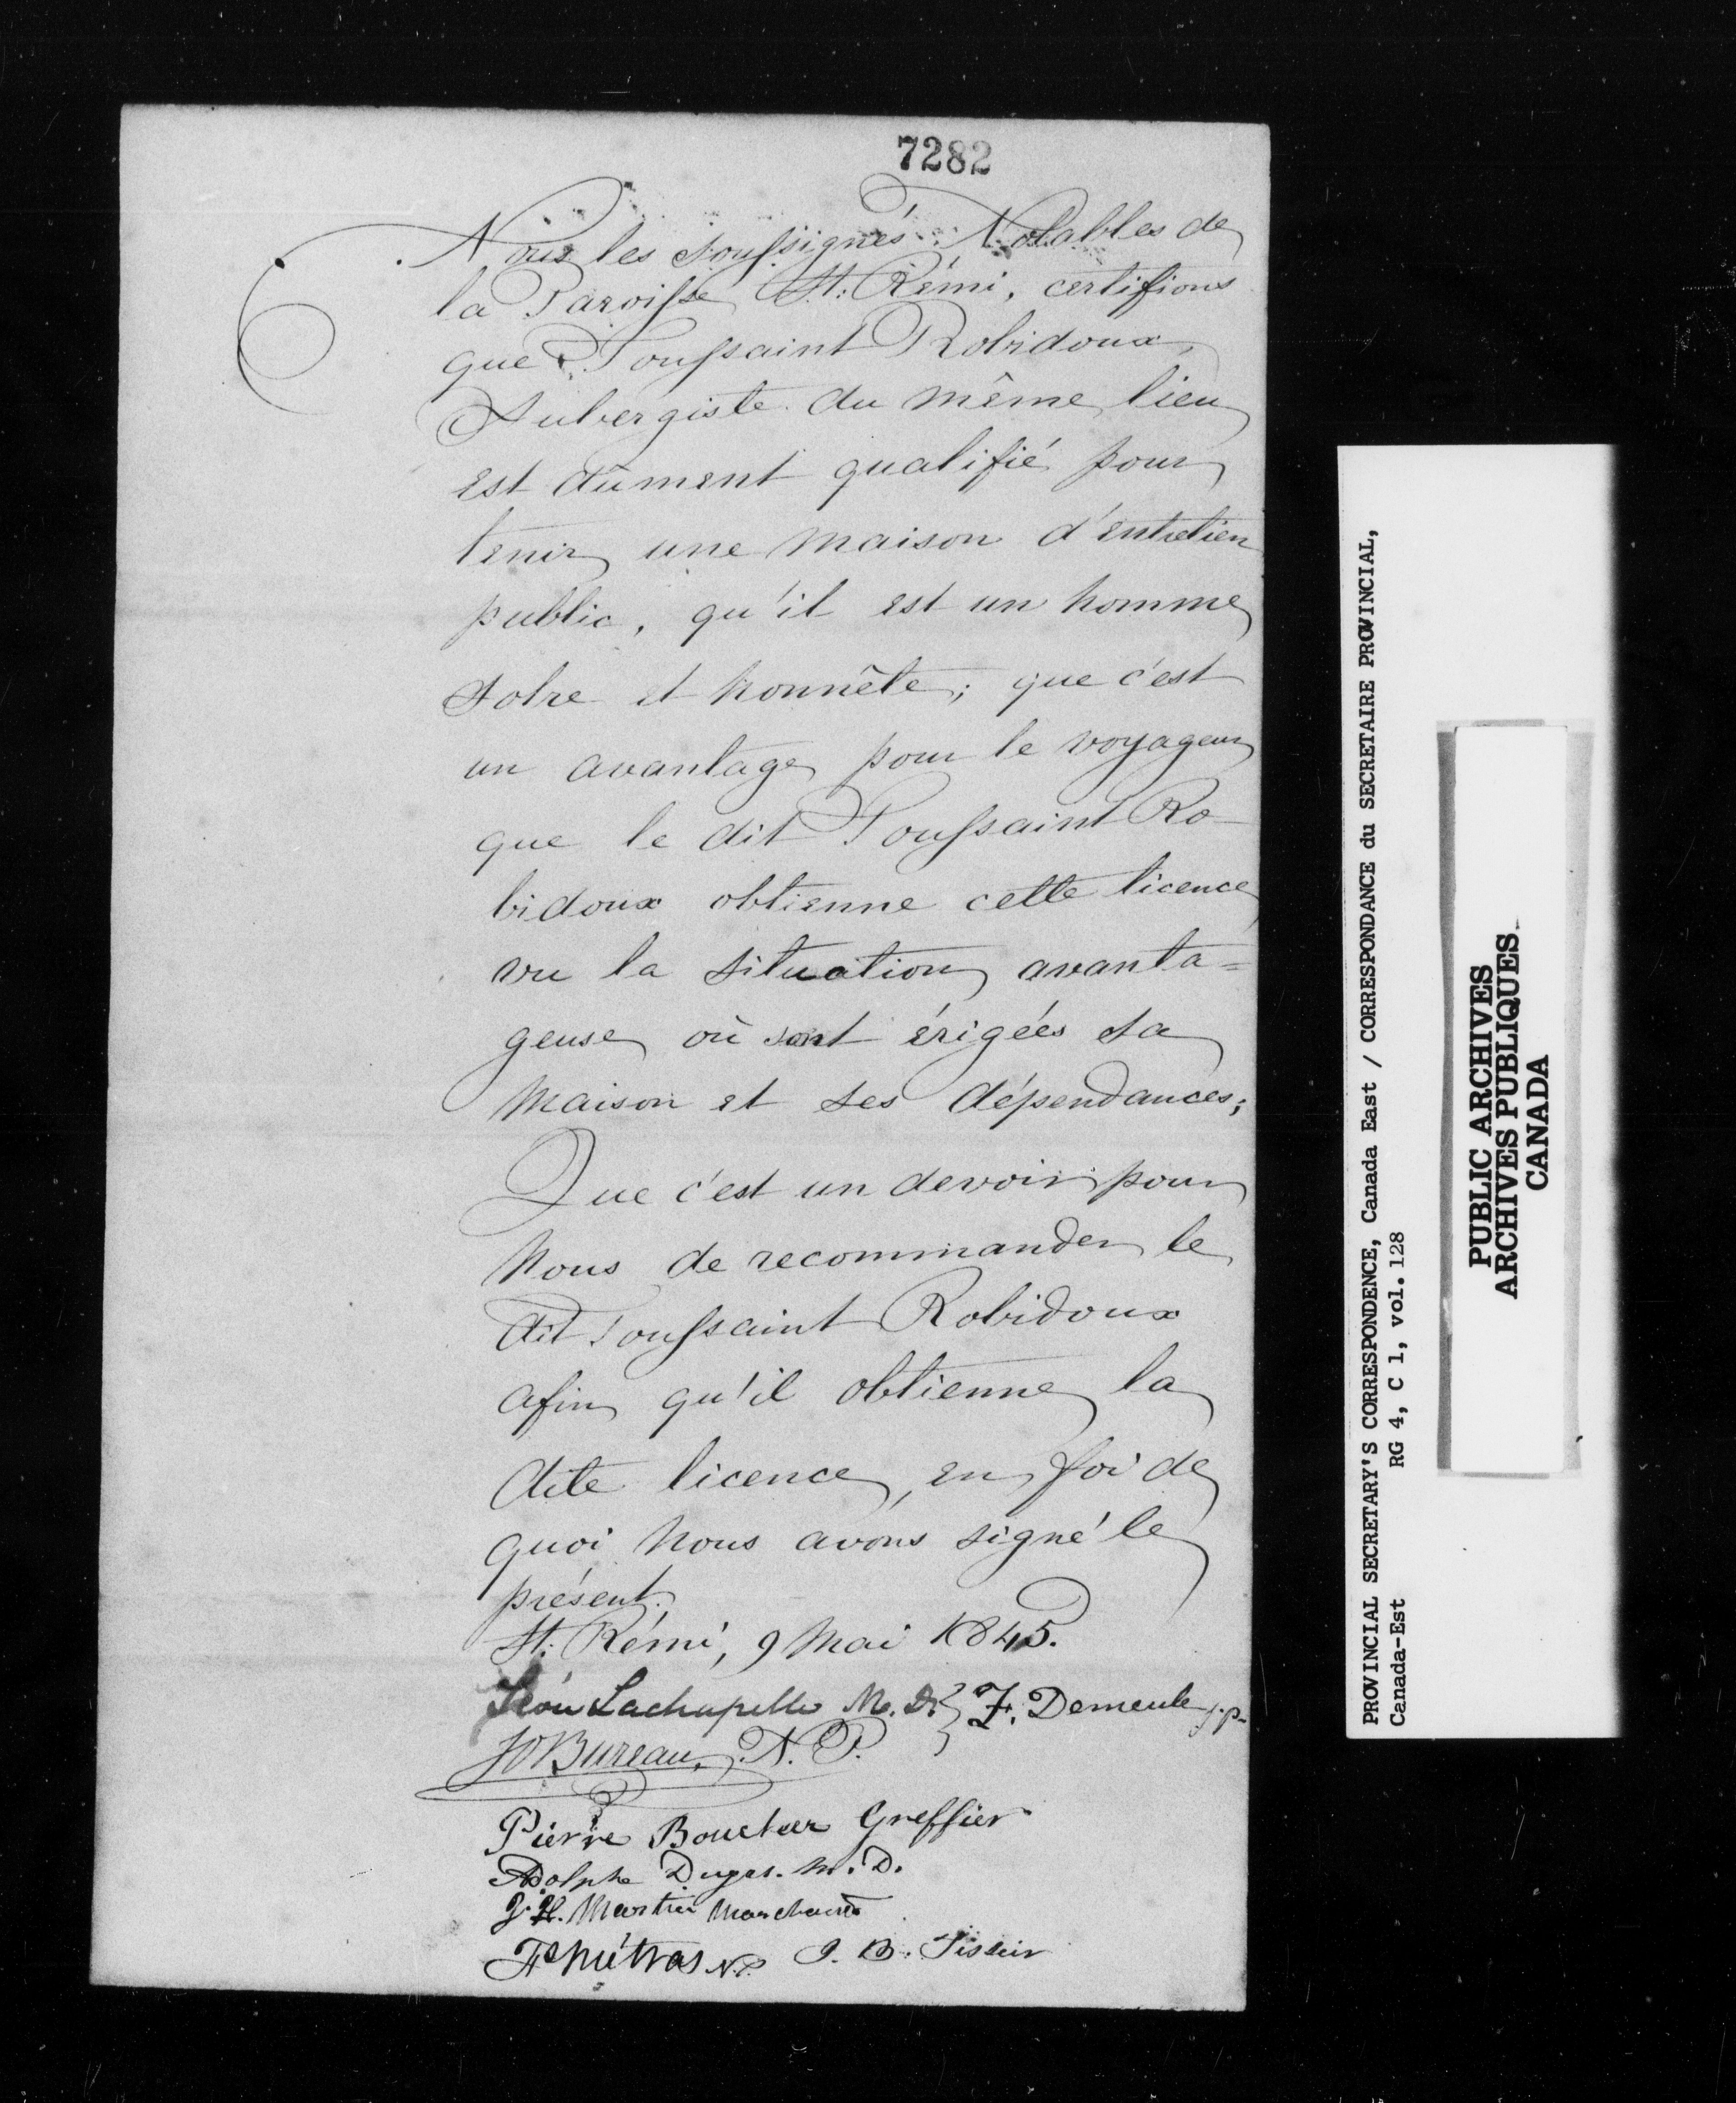 7282
Nous les soussignés Notables de
la Paroisse St: Rémi, certifions
que Toussaint Robidoux,
Aubergiste du même lieu
est dûment qualifié pour
tenir une maison d'entretien
public, qu'il est un homme
sobre et honnête; que c'est
un avantage pour le voyageur
que le dit Toussaint Ro-
bidoux obtienne cette licence
vu la situation avanta=
geuse où sont érigées sa
maison et ses dépendances;
Que c'est un devoir pour
nous de recommander le
dit Toussaint Robidoux
afin qu'il obtienne la
dite licence, en foi de
quoi nous avons signé le
présent.
St: Rémi, 9 Mai 1845.
Léon Lachapelle M. D. F. Demeule j.p.
JO Bureau, N. P.
Pierre Boucher Greffier
Adolphe Dugas. M. D.
J. H. Martin Marchand
Fs Métras N.P. J. B. Tissier
PROVINCIAL SECRETARY'S CORRESPONDENCE, Canada East / CORRESPONDANCE du SECRETAIRE PROVINCIAL,
Canada-Est RG 4, C 1, vol. 128
PUBLIC ARCHIVES
ARCHIVES PUBLIQUES
CANADA